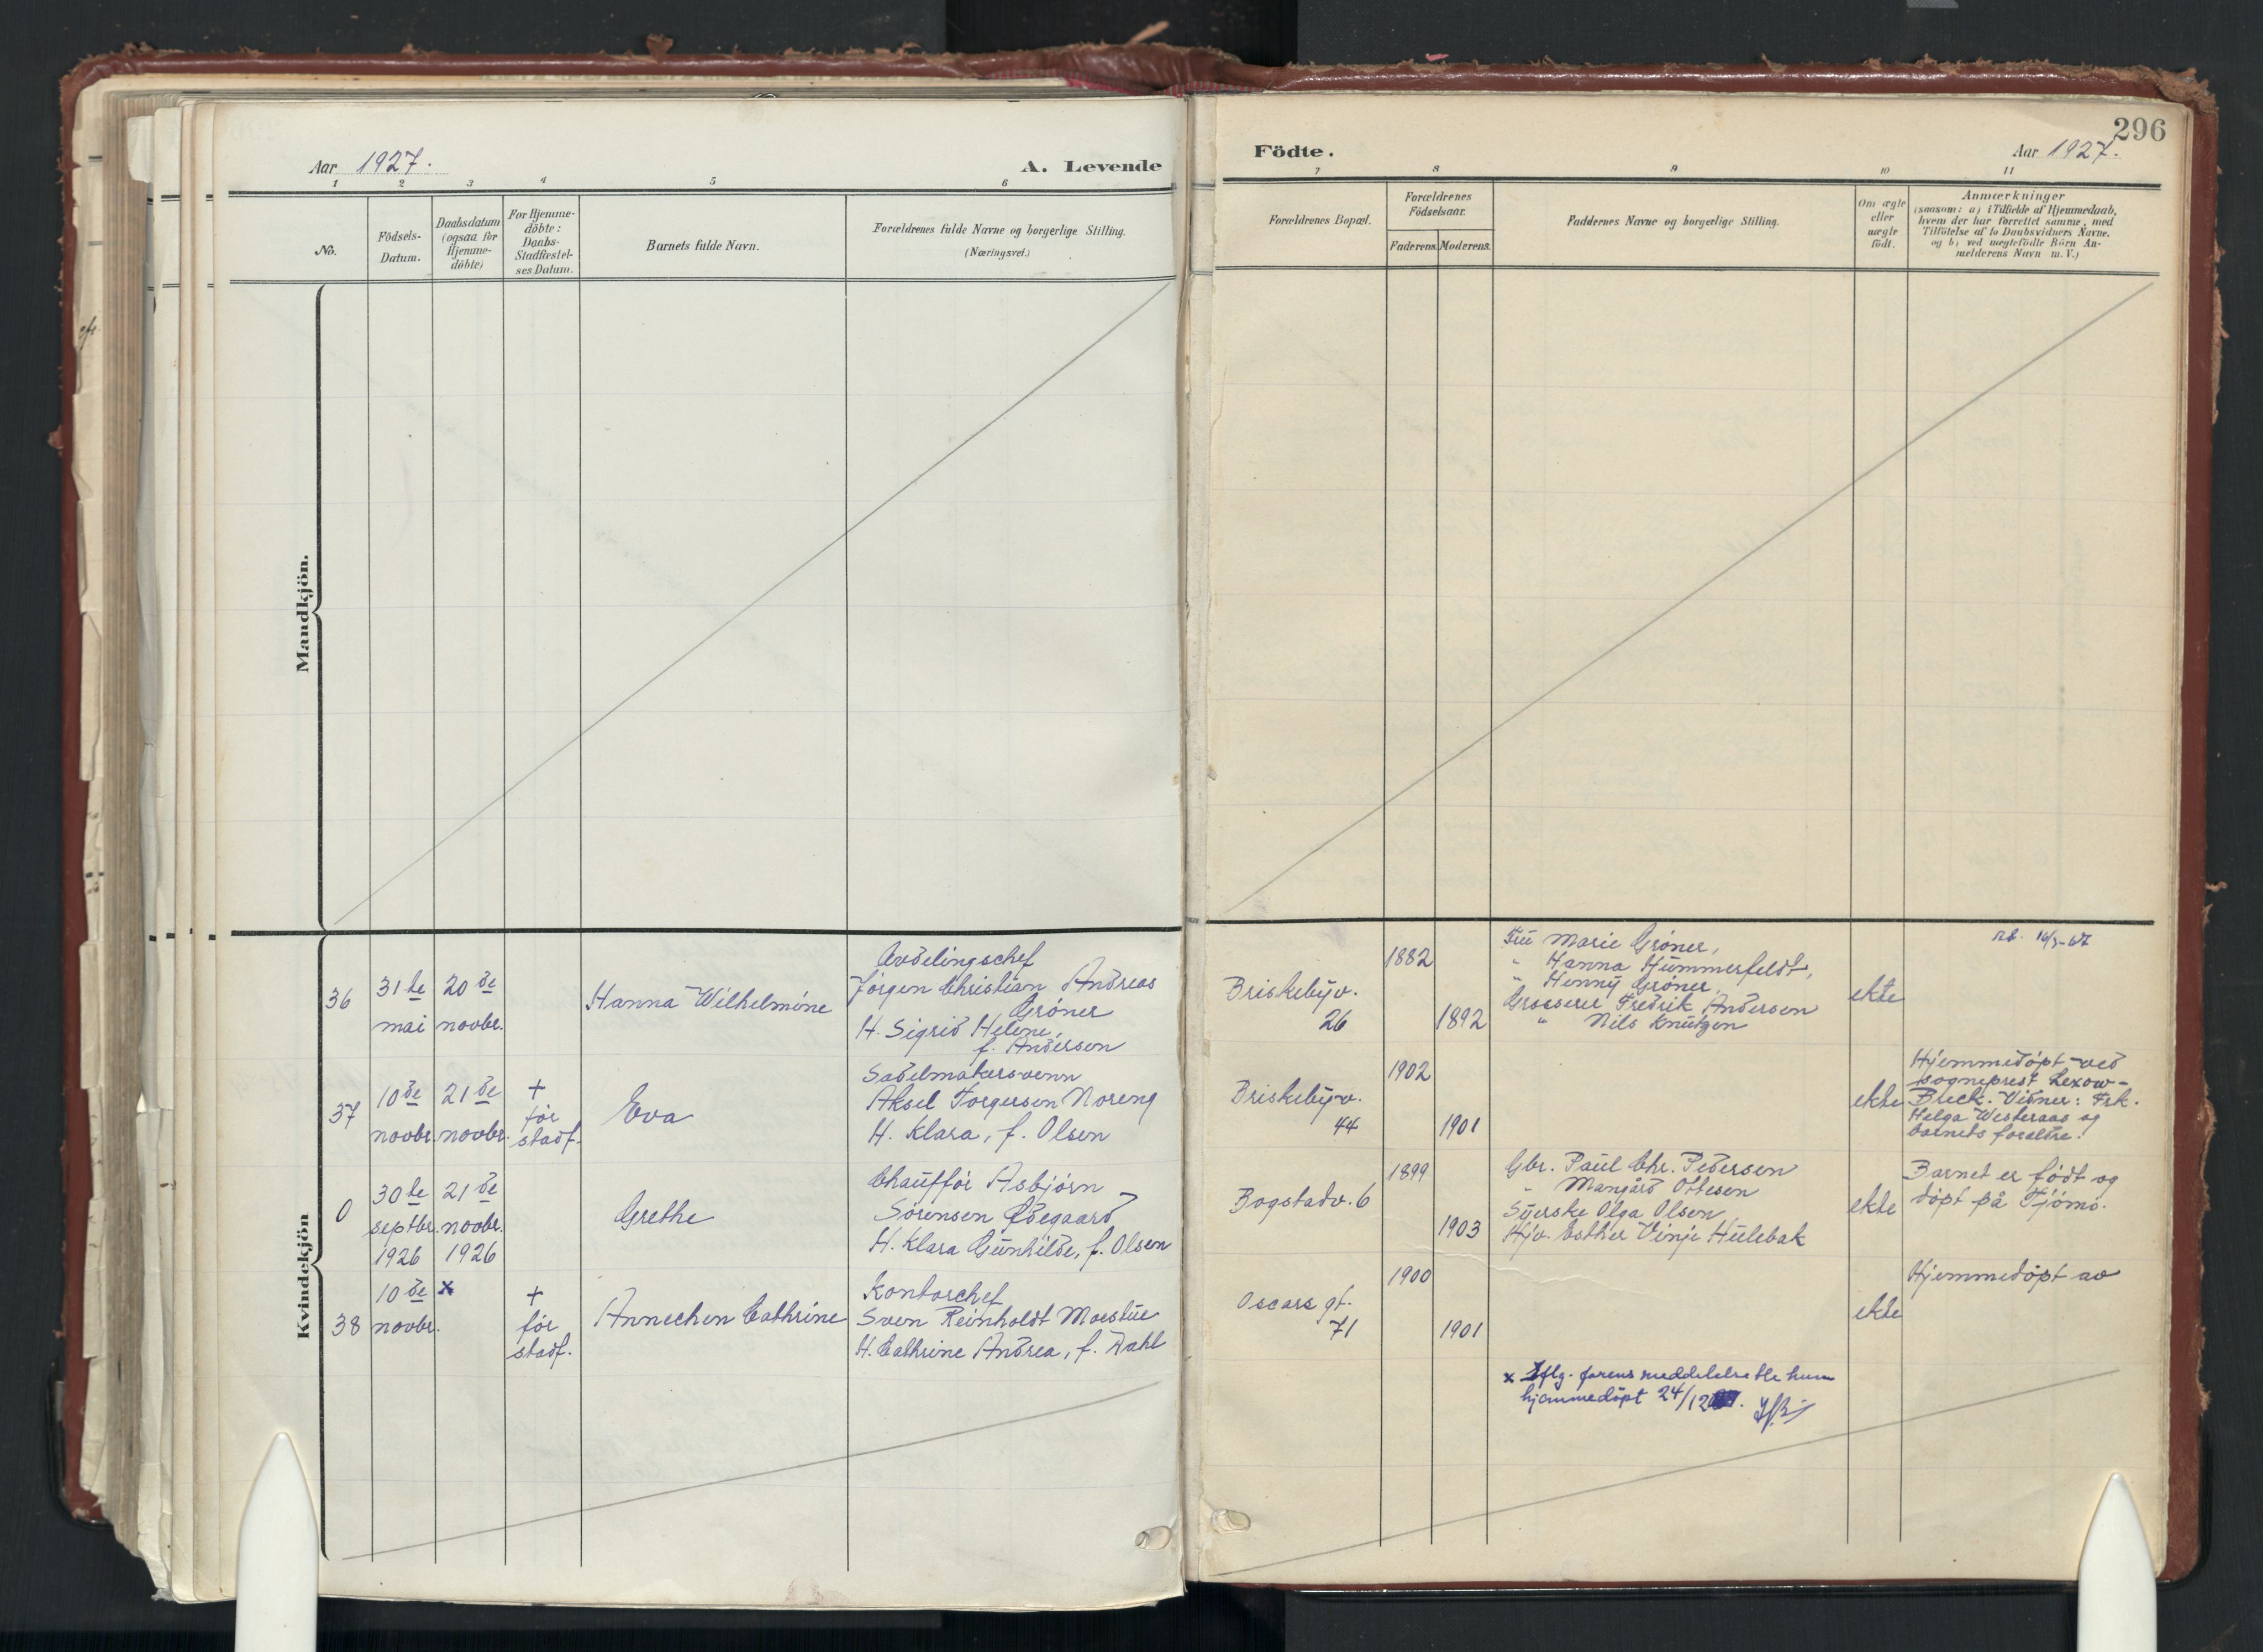 Aar 1927.
A. Levende
1 2 3 4 5 6
No.
Födsels-
Datum.
Daabsdatum
(ogsaa for
Hjemme-
döbte)
For Hjemme-
döbte:
Daabs-
Stadfæstel-
ses Datum.
Barnets fulde Navn.
Forældrenes fulde Navne og borgerlige Stilling.
(Næringsvei.)
Mandkjön.
Kvindekjön
36
31te
mai
20de
novbr.
Hanna Wilhelmine
Avdelingschef
Jörgen Christian Andreas
Gröner
H. Sigrid Helene,
f. Andersen
37
10de
novbr.
21de
novbr.
+
för
stadf.
Eva
Sadelmakersvenn
Aksel Torgersen Noreng
H. Klara, f. Olsen
0
30te
septbr.
1926
21de
novbr.
1926
Grethe
Chaufför Asbjörn
Sörensen Ödegaard
H. Klara Gunhilde, f. Olsen
38
10de
novbr.
x
+
för
stadf.
Annechen Cathrine
Kontorchef
Sven Reinholdt Moestue
H. Cathrine Andrea, f. Dahl
296
Födte.
Aar 1927.
7 8 9 10 11
Forældrenes Bopæl.
Forældrenes
Födselsaar.
Faderens. Moderens.
Faddernes Navne og borgerlige Stilling.
Om ægte
eller
uægte
födt.
Anmærkninger
(saasom: a) i Tilfælde af Hjemmedaab,
hvem der har forrettet samme, med
Tilföielse af to Daabsvidners Navne,
og b) ved uægtefödte Börn An-
melderens Navn m. V.)
Briskebyv.
26
1882
1892
Fru Marie Gröner,
" Hanna Hummerfeldt,
" Henny Gröner,
Grosserer Fredrik Andersen
" Nils Knutzen
ekte
Briskebyv.
44
1902
1901
ekte
Hjemmedöpt ved
sogneprest Lexow-
Bleck. Vidner: Frk.
Helga Westeraas og
barnets foreldre.
Bogstadv. 6
1899
1903
Gbr. Paul Chr. Pedersen
" Mangård Ottesen
Syerske Olga Olsen
Hjv. Esther Vinje Hulebak
ekte
Barnet er födt og
döpt på Tjömö.
Oscars gt.
71
1900
1901
ekte
Hjemmedöpt av
x Iflg. farens meddelelse ble hun
hjemmedöpt 24/12